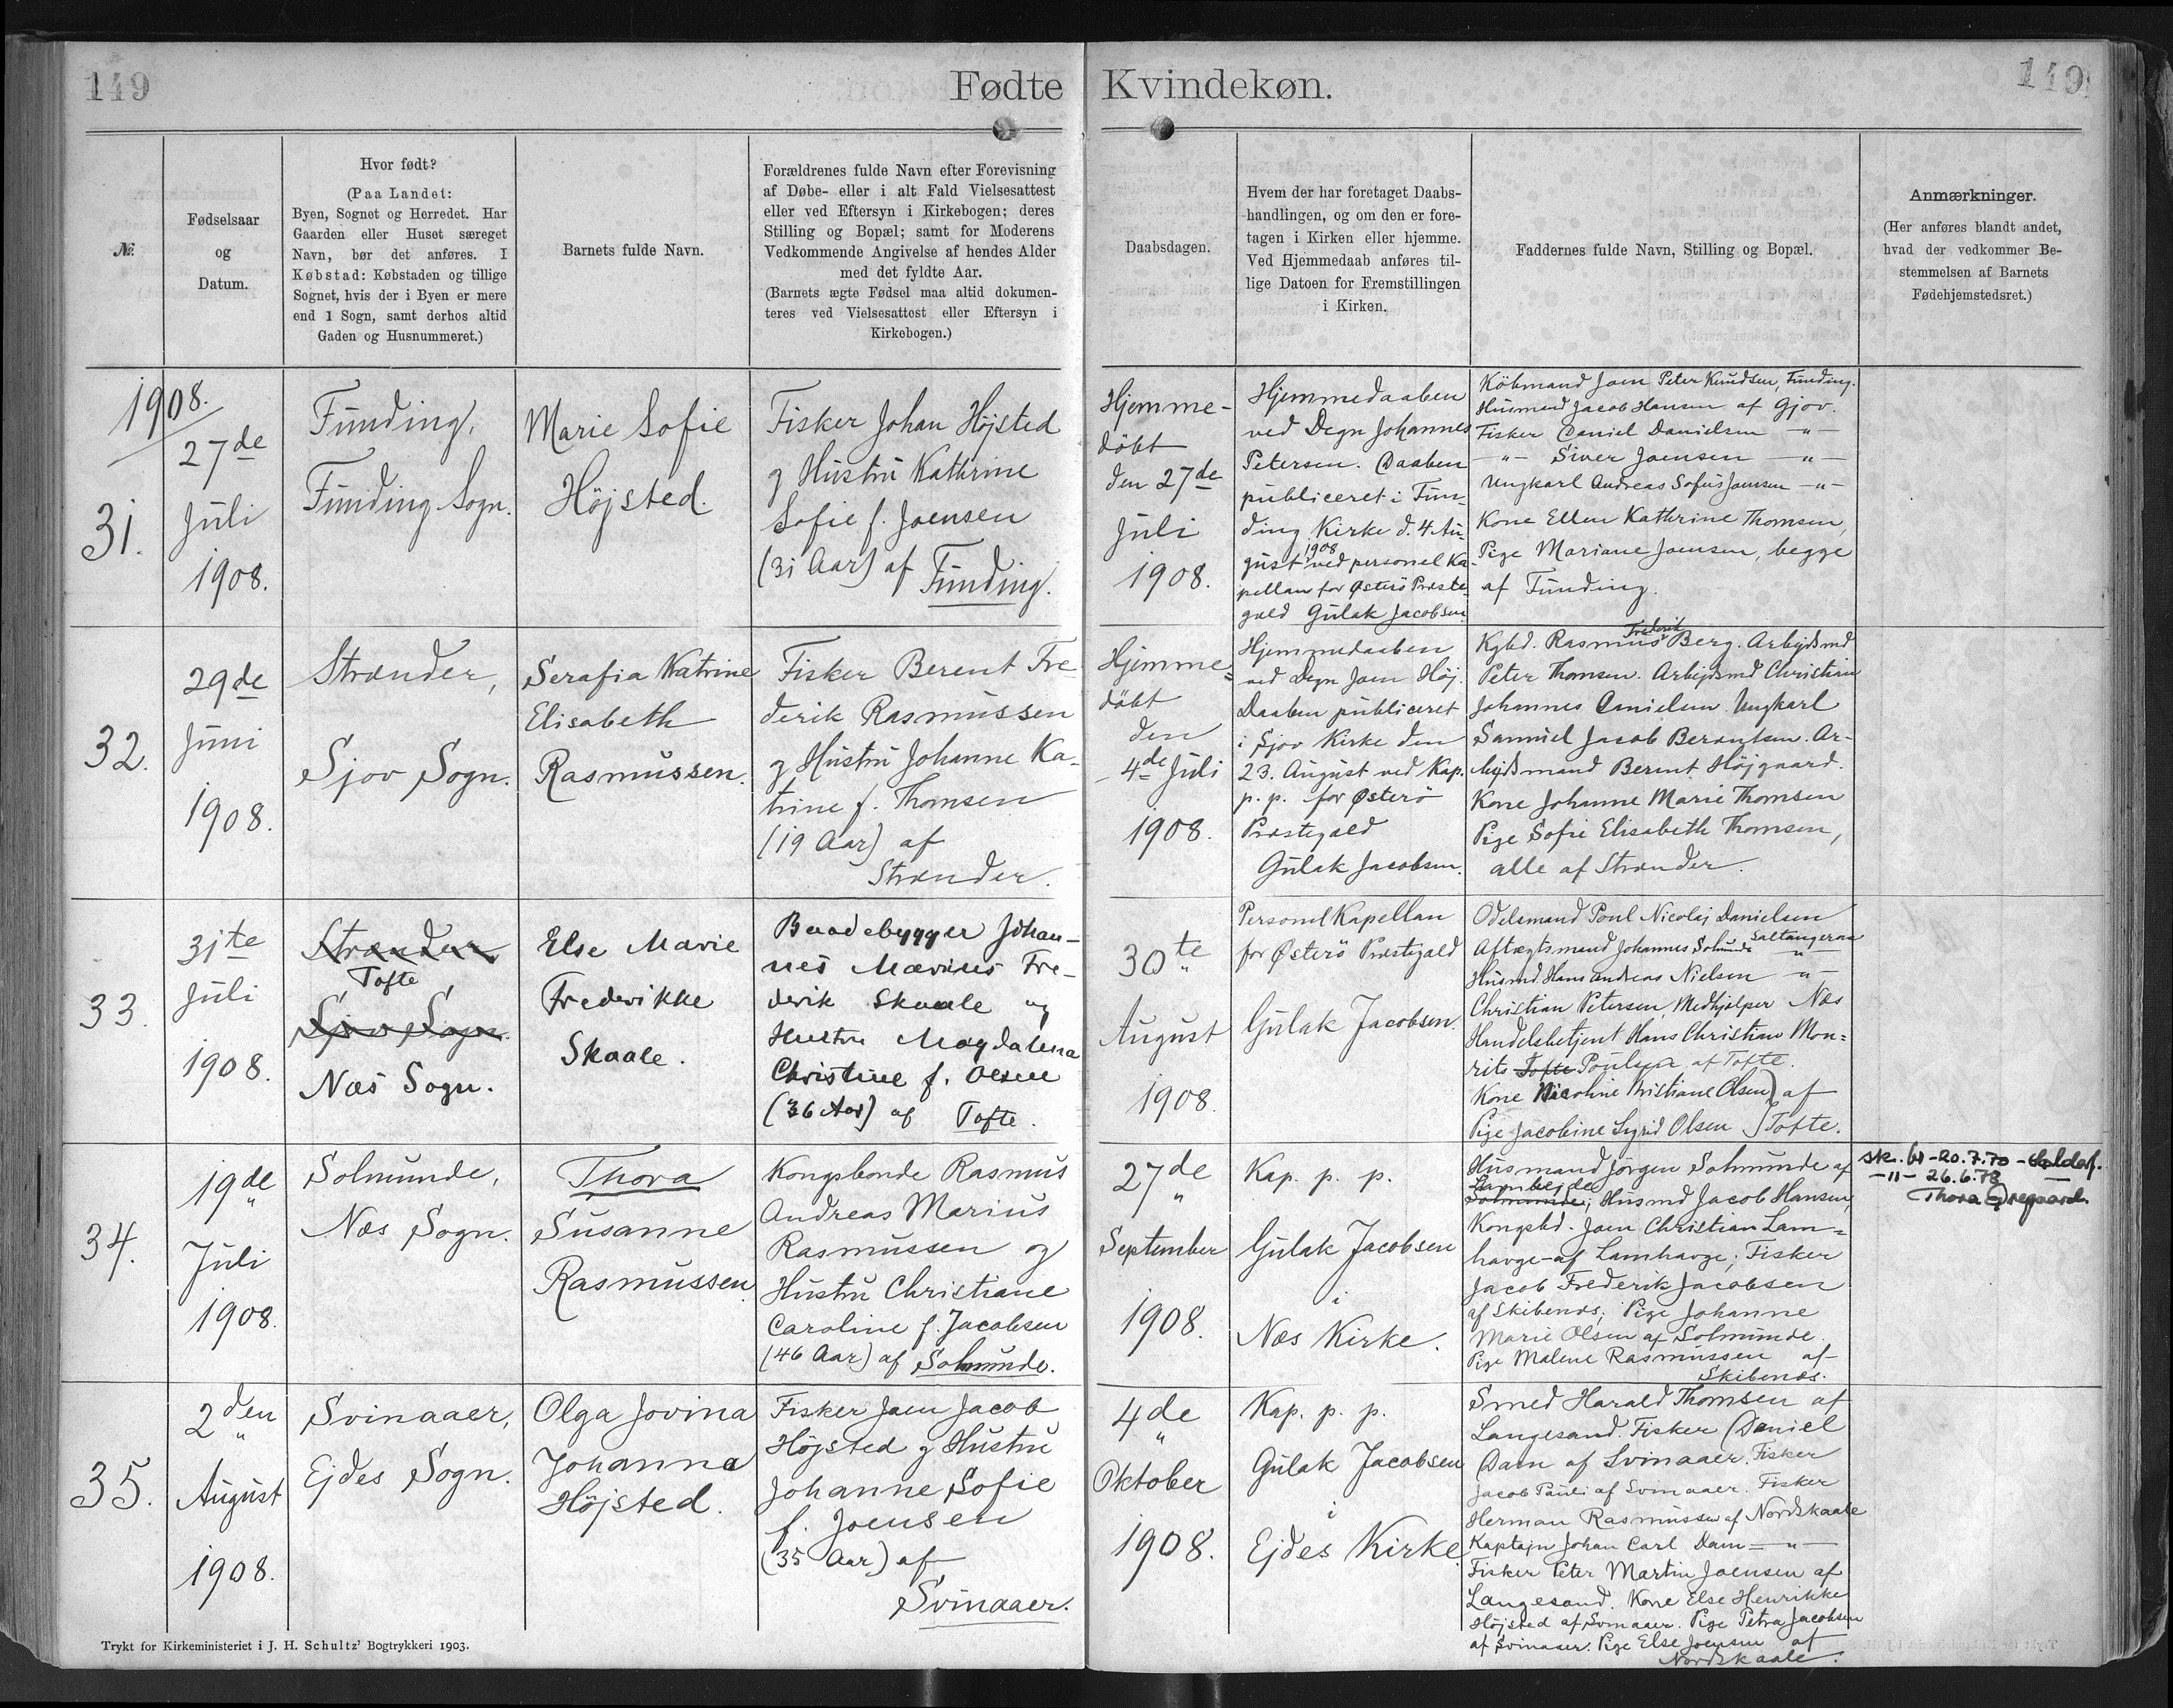 149
Fødte
Kvindekøn.
149
№
Fødselsaar
og
Datum.
Hvor født?
(Paa Landet:
Byen, Sognet og Herredet. Har
Gaarden eller Huset særeget
Navn, bør det anføres. I
Købstad: Købstaden og tillige
Sognet, hvis der i Byen er mere
end 1 Sogn, samt derhos altid
Gaden og Husnummeret.)
Barnets fulde Navn.
Forældrenes fulde Navn efter Forevisning
af Døbe- eller i alt Fald Vielsesattest
eller ved Eftersyn i Kirkebogen; deres
Stilling og Bopæl; samt for Moderens
Vedkommende Angivelse af hendes Alder
med det fyldte Aar.
(Barnets ægte Fødsel maa altid dokumen-
teres ved Vielsesattest eller Eftersyn i
Kirkebogen.)
Daabsdagen.
Hvem der har foretaget Daabs-
handlingen, og om den er fore-
tagen i Kirken eller hjemme.
Ved Hjemmedaab anføres til-
lige Datoen for Fremstillingen
i Kirken.
Faddernes fulde Navn, Stilling og Bopæl.
Anmærkninger.
(Her anføres blandt andet,
hvad der vedkommer Be-
stemmelsen af Barnets
Fødehjemstedsret.)
1908.
31.
27de
Juli
1908.
Funding,
Funding Sogn.
Marie Sofie
Højsted.
Fisker Johan Højsted
og Hustru Kathrine
Sofie f. Joensen
(31 Aar) af Funding.
Hjemme-
döbt
den 27de
Juli
1908.
Hjemmedaaben
ved Degn Johannes
Petersen. Daaben
publiceret i Fun-
ding Kirke d. 4 Au-
gust 1908 ved personel Ka-
pellan for Østerö Præste-
gæld Gulak Jacobsen
Köbmand Joen Peter Knudsen, Funding.
Husmand Jacob Hansen af Gjov.
Fisker Daniel Danielsen -"-
-"- Siver Joensen -"-
Ungkarl Andreas Sofus Joensen -"-
Kone Ellen Kathrine Thomsen,
Pige Mariane Joensen, begge
af Funding.
32.
29de
Juni
1908.
Strænder,
Sjov Sogn.
Serafia Katrine
Elisabeth
Rasmussen.
Fisker Berent Fre
derik Rasmussen
og Hustru Johanne Ka-
trine f. Thomsen
(19 Aar) af
Strænder.
Hjemme=
döbt
den
4de Juli
1908.
Hjemmedaaben
ved Degn Joen Høj.
Daaben publiceret
i Sjov Kirke den
23. August ved Kap.
p. p. for Østerö
Præstegæld
Gulak Jacobsen.
Kgbd. Rasmus Frederik Berg. Arbejdsmd
Peter Thomsen. Arbejdsmd Christian
Johannes Danielsen. Ungkarl
Samuel Jacob Berentsen. Ar-
bejdsmand Berent Højgaard.
Kone Johanne Marie Thomsen
Pige Sofie Elisabeth Thomsen,
alle af Strænder.
33.
31te
Juli
1908.
Strænder
Tofte
Sjov Sogn.
Næs Sogn.
Else Marie
Frederikke
Skaale.
Baadebygger Johan-
nes Marius Fre-
derik Skaale og
Hustru Magdalena
Christine f. Olsen
(36 Aar) af Tofte.
30te
August
1908.
Personel Kapellan
for Østerö Præstegæld
Gulak Jacobsen.
Odelsmand Poul Nicolaj Danielsen
Saltangeraa
Aftægtsmand Johannes Solmunde -"-
Husmd. Hans Andreas Nielsen -"-
Christian Petersen, Medhjælper Næs
Handelsbetjent Hans Christian Mou=
rits Tofte Poulsen af Tofte.
Kone Nicoline Kristiane Olsen) af
Pige Jacobine Sigrid Olsen } Tofte.
34.
19de
Juli
1908.
Solmunde,
Næs Sogn.
Thora
Susanne
Rasmussen.
Kongsbonde Rasmus
Andreas Marius
Rasmussen og
Hustru Christiane
Caroline f. Jacobsen
(46 Aar) af Solmunde.
27de
September
1908.
Kap. p. p.
Gulak Jacobsen
i
Næs Kirke.
Husmand Jörgen Solmunde af
Lambejde
Solmunde; Husmd Jacob Hansen,
Kongsbd. Joen Christian Lam=
havge af Lamhavge; Fisker
Jacob Frederik Jacobsen
af Skibenæs; Pige Johanne
Marie Olsen af Solmunde.
Pige Malene Rasmussen af
Skibenæs.
-20.7.70-
-11- 26.6.78
Thora
35.
2den
August
1908.
Svinaaer,
Ejdes Sogn.
Olga Jovina
Johanna
Højsted.
Fisker Joen Jacob
Højsted og Hustru
Johanne Sofie
f. Joensen
(35 Aar) af
Svinaaer.
4de
Oktober
1908.
Kap. p. p.
Gulak Jacobsen
i
Ejdes Kirke.
Smed Harald Thomsen af
Langesand. Fisker Daniel
Dam af Svinaaer. Fisker
Jacob Pauli af Svinaaer. Fisker
Herman Rasmussen af Nordskaale
Kaptajn Johan Carl Dam -"-
Fisker Peter Martin Joensen af
Langesand. Kone Else Henrikke
Højsted af Svinaaer. Pige Petra Jacobsen
af Svinaaer. Pige Else Joensen af
Nordskaale.
Trykt for Kirkeministeriet i J. H. Schultz' Bogtrykkeri 1903.